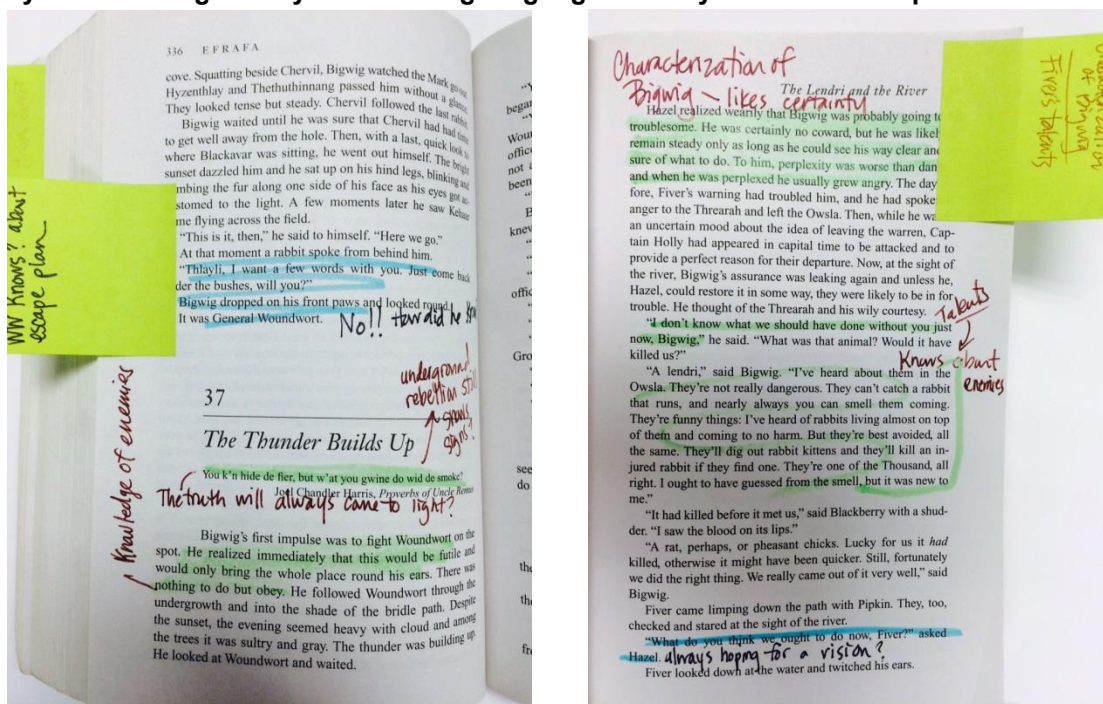 336 EFRAFA
cove. Squatting beside Chervil, Bigwig watched the Mark go out.
Hyzenthlay and Thethuthinnang passed him without a glance.
They looked tense but steady. Chervil followed the last rabbit.
Bigwig waited until he was sure that Chervil had had time
to get well away from the hole. Then, with a last, quick look to
where Blackavar was sitting, he went out himself. The bright
sunset dazzled him and he sat up on his hind legs, blinking and
mbing the fur along one side of his face as his eyes got ac-
stomed to the light. A few moments later he saw Kehaar
me flying across the field.
"This is it, then," he said to himself. "Here we go."
At that moment a rabbit spoke from behind him.
"Thlayli, I want a few words with you. Just come back
der the bushes, will you?"
Bigwig dropped on his front paws and looked round.
It was General Woundwort.
No!! How did he know
WW knows? about
escape plan
Knowledge of enemies
underground
rebellion still
growls
signs?
37
The Thunder Builds Up
You k'n hide de fier, but w'at you gwine do wid de smoke?
Joel Chandler Harris, Proverbs of Uncle Remus
The truth will always come to light?
Bigwig's first impulse was to fight Woundwort on the
spot. He realized immediately that this would be futile and
would only bring the whole place round his ears. There was
nothing to do but obey. He followed Woundwort through the
undergrowth and into the shade of the bridle path. Despite
the sunset, the evening seemed heavy with cloud and among
the trees it was sultry and gray. The thunder was building up.
He looked at Woundwort and waited.
Characterization of
Bigwig – likes certainty
The Lendri and the River
Hazel realized wearily that Bigwig was probably going to
troublesome. He was certainly no coward, but he was likel
remain steady only as long as he could see his way clear and
sure of what to do. To him, perplexity was worse than dan
and when he was perplexed he usually grew angry. The day
fore, Fiver's warning had troubled him, and he had spoke
anger to the Threarah and left the Owsla. Then, while he wa
an uncertain mood about the idea of leaving the warren, Cap-
tain Holly had appeared in capital time to be attacked and to
provide a perfect reason for their departure. Now, at the sight of
the river, Bigwig's assurance was leaking again and unless he,
Hazel, could restore it in some way, they were likely to be in for
trouble. He thought of the Threarah and his wily courtesy.
Talents
"I don't know what we should have done without you just
now, Bigwig," he said. "What was that animal? Would it have
killed us?"
Knows about
enemies
"A lendri," said Bigwig. "I've heard about them in the
Owsla. They're not really dangerous. They can't catch a rabbit
that runs, and nearly always you can smell them coming.
They're funny things: I've heard of rabbits living almost on top
of them and coming to no harm. But they're best avoided, all
the same. They'll dig out rabbit kittens and they'll kill an in-
jured rabbit if they find one. They're one of the Thousand, all
right. I ought to have guessed from the smell, but it was new to
me."
"It had killed before it met us," said Blackberry with a shud-
der. "I saw the blood on its lips."
"A rat, perhaps, or pheasant chicks. Lucky for us it had
killed, otherwise it might have been quicker. Still, fortunately
we did the right thing. We really came out of it very well," said
Bigwig.
Fiver came limping down the path with Pipkin. They, too,
checked and stared at the sight of the river.
"What do you think we ought to do now, Fiver?" asked
Hazel.
always hoping for a vision?
Fiver looked down at the water and twitched his ears.
of Bigwig
Fiver's talents